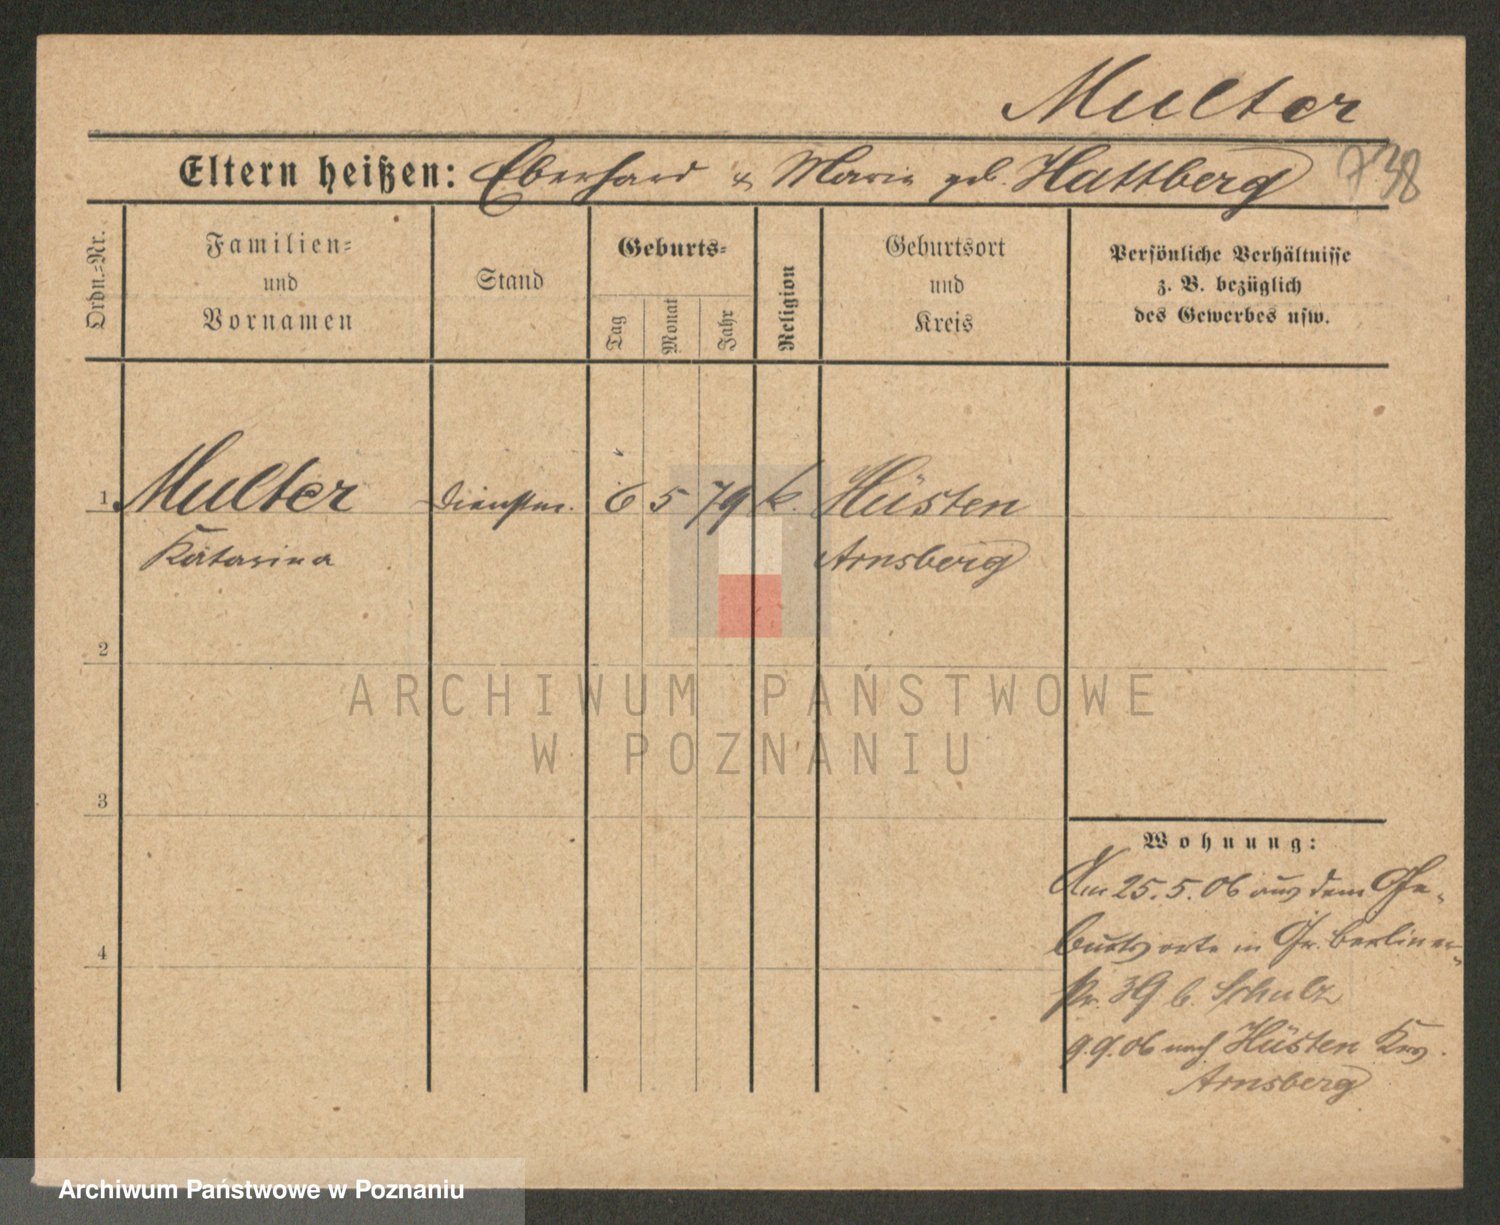 Multer
Eltern heißen: Eberhard & Marie geb. Hattberg
738
Ordn.=Nr.
Familien=
und
Vornamen
Stand
Geburts=
Tag
Monat
Jahr
Religion
Geburtsort
und
Kreis
Persönliche Verhältnisse
z. B. bezüglich
des Gewerbes usw.
1 Multer Dienstm. 6 5 79 k. Hüsten
Katarina Arnsberg
2
ARCHIWUM PAŃSTWOWE
W POZNANIU
3
Wohnung:
Am 25.5.06 aus dem Ge-
burtsorte in Gr. Berliner-
str. 39 b. Schulz
9.9.06 nach Hüsten Krs.
Arnsberg
4
Archiwum Państwowe w Poznaniu